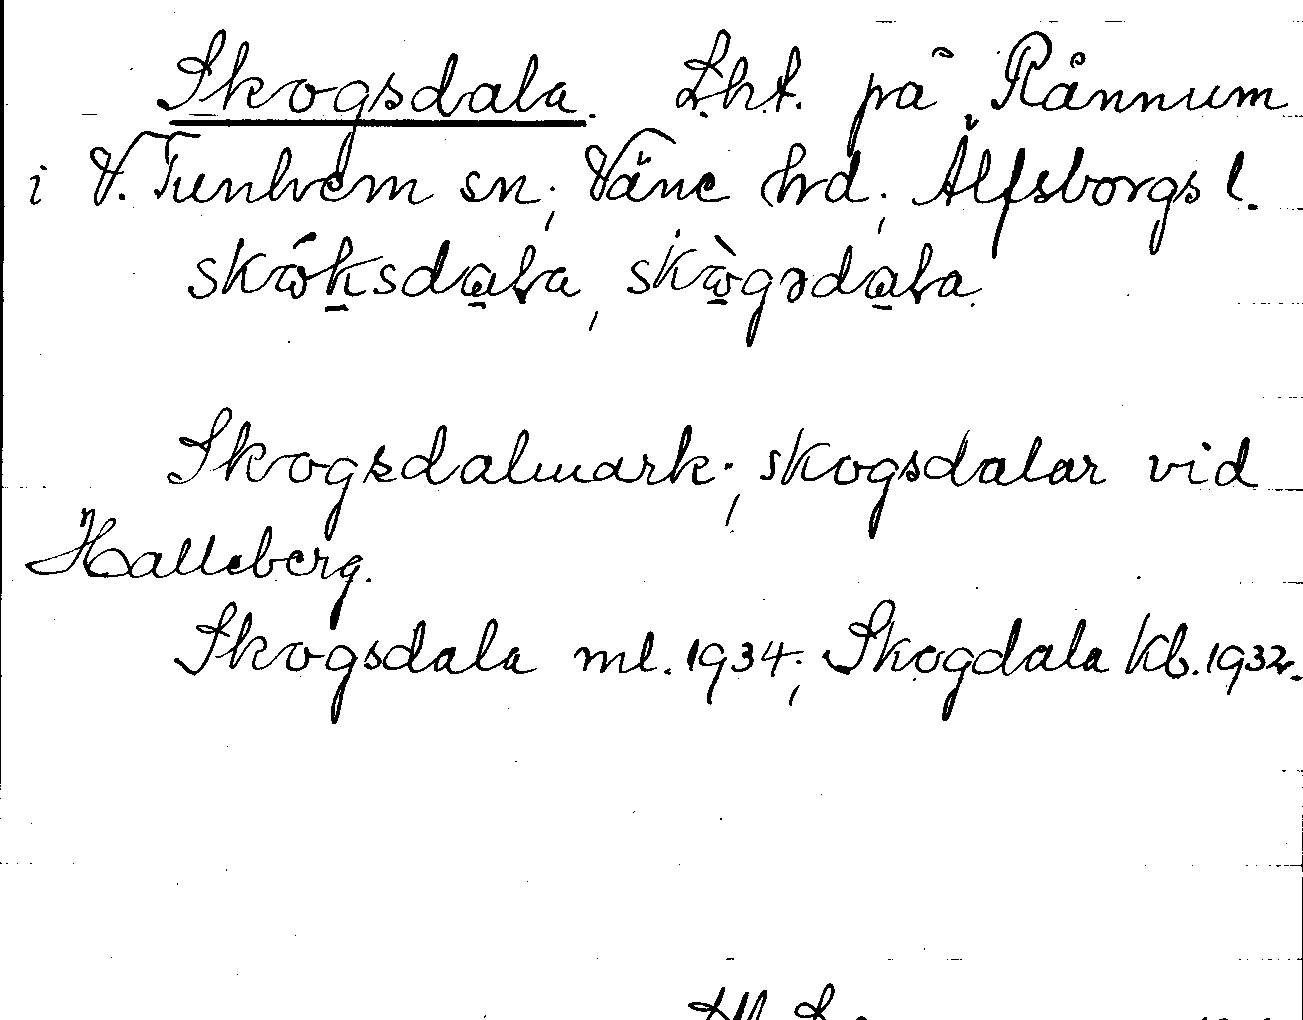 Skogsdala. Lht. på Rånnum
i V. Tunhem sn; Väne hrd; Älfsborgs l.
skǻksdaɫa, skὼgədaɫa.
Skogsdalmark; skogsdalar vid
Halleberg.
Skogsdala ml. 1934; Skogdala Kb. 1932.